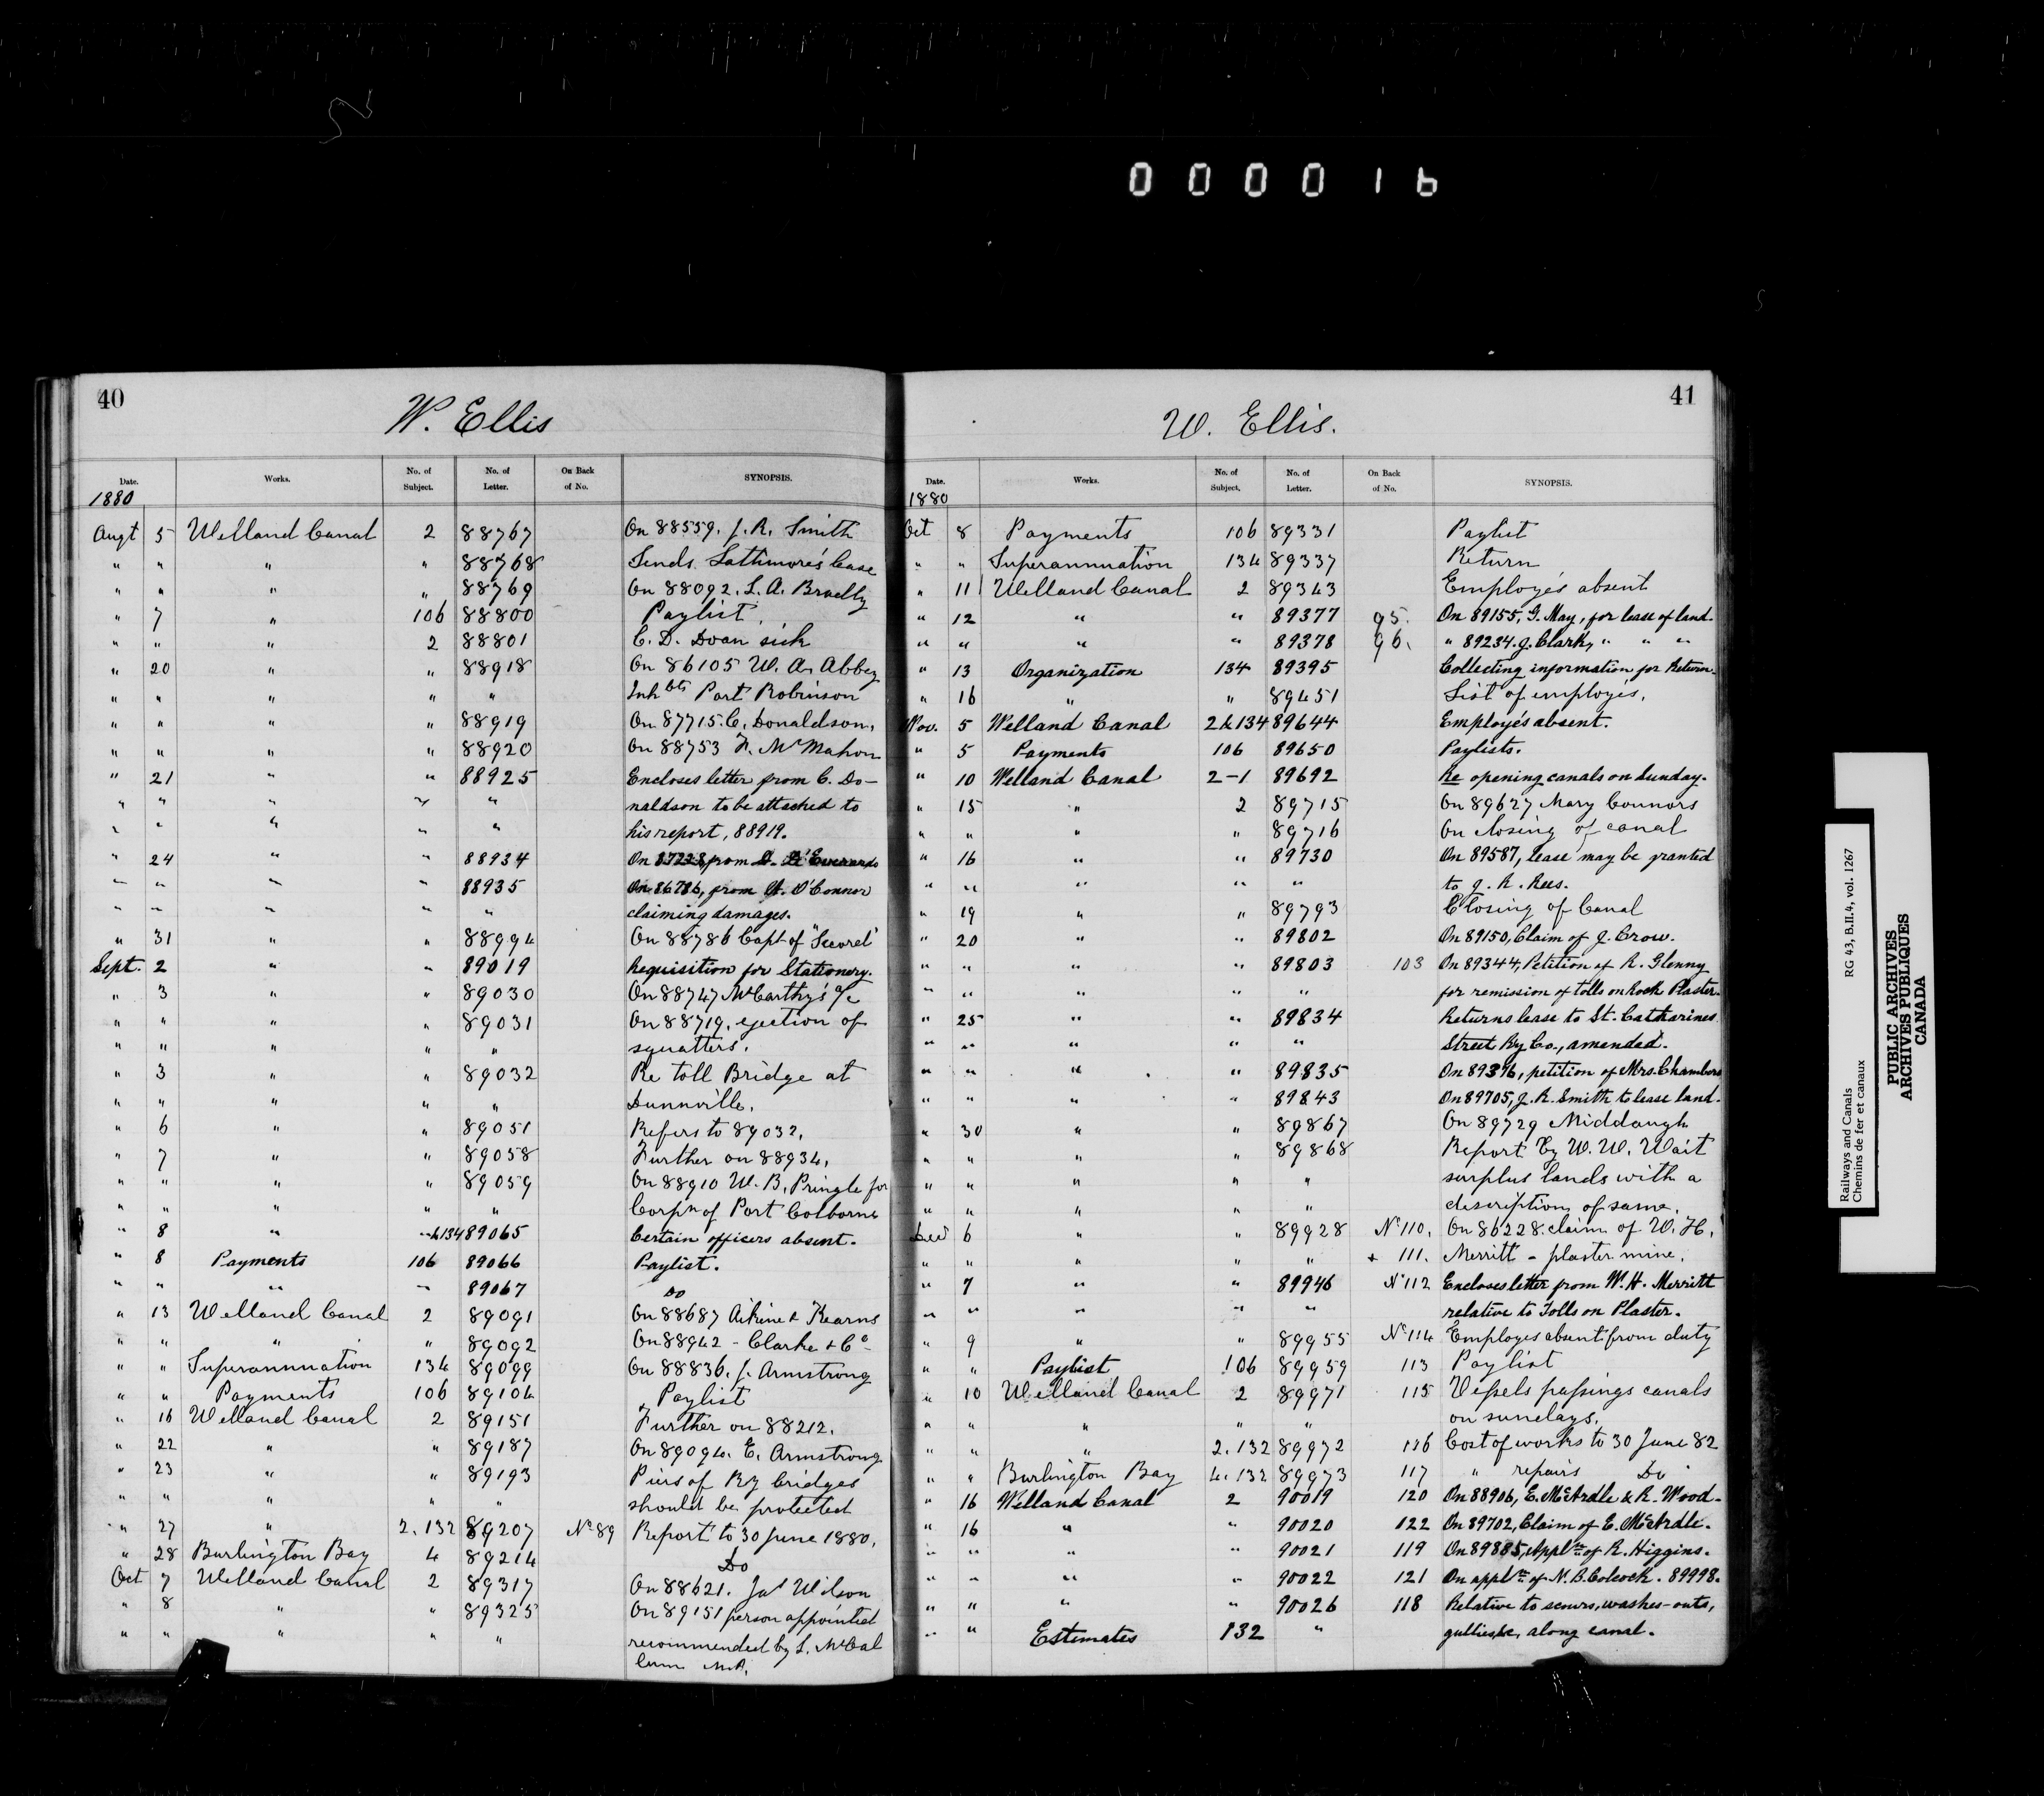 000016
40
W. Ellis
Date. Works. No. of Subject. No. of Letter. On Back of No. SYNOPSIS.
1880
Augt 5 Welland Canal 2 88767 On 88559. J. R. Smith
" " " " 88768 Sends Lattimore's lease
" " " " 88769 On 88092. L. A.
" 7 " 106 88800 Paylist.
" " " 2 88801 C. D. Doan sick
" 20 " " 88918 On 86105 W. A. Abbey
" " " " " Inhbts Port Robinson
" " " " 88919 On 87715. C. Donaldson.
" " " " 88920 On 88753 F. McMahon
" 21 " " 88925 Encloses letter from C. Do-
" " " " " naldson to be attached to
" " " " " his report, 88919.
" 24 " " 88934 On from
" " " " 88935 On 86786, from O'Connor
" " " " " claiming damages.
" 31 " " 88994 On 88786 Capt of "Secord"
Sept. 2 " " 89019 Requisition for Stationery.
" 3 " " 89030 On 88747 McCarthy's a/c
" " " " 89031 On 88719. ejection of
" " " " " squatters.
" 3 " " 89032 Re toll Bridge at
" " " " " Dunnville.
" 6 " " 89051 Refers to 89032.
" 7 " " 89058 Further on 88934.
" " " " 89059 On 88910 W. B. Pringle for
" " " " " Corpn of Port Colborne
" 8 " " &134 89065 Certain officers absent.
" 8 Payments 106 89066 Paylist.
" " " " 89067 Do
" 13 Welland Canal 2 89091 On 88687 & Kearns
" " " " 89092 On 88942 - Clarke & Co
" " Superannuation 134 89099 On 88836. J. Armstrong
" " Payments 106 89104 Paylist
" 16 Welland Canal 2 89151 Further on 88212.
" 22 " " 89187 On 89094. E. Armstrong
" 23 " " 89193 Piers of Ry bridges
" " " " " should be protected
" 27 " 2.132 89207 No 89 Report to 30 June 1880.
" 28 Burlington Bay 4 89214 Do
Oct 7 Welland Canal 2 89317 On 88621. Jas Wilson
" 8 " " 89325 On 89151 person appointed
" " " " " recommended by L. McCal
lum M.P.
41
W. Ellis.
Date. Works. No. of Subject. No. of Letter. On Back of No. SYNOPSIS.
1880
Oct 8 Payments 106 89331 Paylist
" " Superannuation 134 89337 Return
" 11 Welland Canal 2 89343 Employés absent
" 12 " " 89377 95. On 89155, G. May, for lease of land.
" " " " 89378 96. " 89234. J. Clark, " " "
" 13 Organization 134 89395 Collecting information for Return.
" 16 " " 89451 List of employés.
Nov. 5 Welland Canal 2&134 89644 Employés absent.
" 5 Payments 106 89650 Paylists.
" 10 Welland Canal 2-1 89692 Re opening canals on Sunday.
" 15 " 2 89715 On 89627 Mary Connors
" " " " 89716 On closing of canal
" 16 " " 89730 On 89587, lease may be granted
" " " " " to J. R. Rees.
" 19 " " 89793 Closing of Canal
" 20 " " 89802 On 89150, Claim of J. Crow.
" " " " 89803 103 On 89344, Petition of R. Glenny
" " " " " for remission of tolls on Rock Plaster.
" 25 " " 89834 Returns lease to St. Catharines
" " " " " Street Ry Co., amended.
" " " " 89835 On 89396, petition of Mrs. Chambers
" " " " 89843 On 89705, J. R. Smith to lease land.
" 30 " " 89867 On 89729 Middaugh
" " " " 89868 Report by W. W. Wait
" " " " " surplus lands with a
" " " " " description of same.
Dec 6 " " 89928 No 110. On 86228. claim of W. H.
" " " " " + 111. Merritt - plaster mine.
" 7 " " 89946 No 112 Encloses letter from W. H. Merritt
" " " " " relative to Tolls on Plaster.
" 9 " " 89955 No 114 Employes absent from duty
" " Paylist 106 89959 113 Paylist
" 10 Welland Canal 2 89971 115 Vessels passings canals
" " " " " on sundays.
" " " 2.132 89972 116 Cost of works to 30 June 82
" " Burlington Bay 4.132 89973 117 " repairs Do
" 16 Welland Canal 2 90019 120 On 88906, E. McArdle & R. Wood.
" 16 " " 90020 122 On 89702, Claim of E. McArdle.
" " " " 90021 119 On 89885, Appltn of R. Higgins.
" " " " 90022 121 On appltn of N. B. Colcock. 89998.
" " " " 90026 118 Relative to scours, washes-outs,
" " Estimates 132 " gullies, &c, along canal.
Railways and Canals RG 43, B.II.4, vol. 1267
Chemins de fer et canaux
PUBLIC ARCHIVES
ARCHIVES PUBLIQUES
CANADA